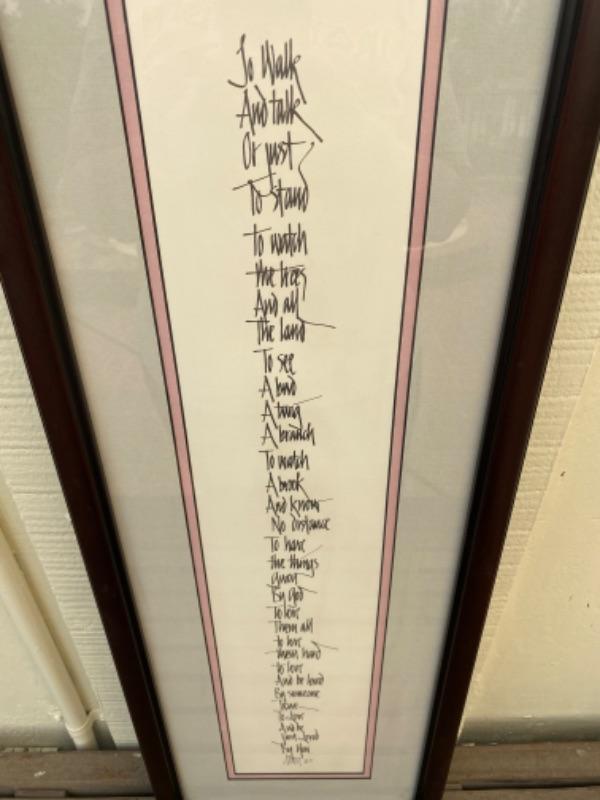 To Walk
And talk
Or just
To stand
To watch
the trees
And all
The land
To see
A bird
A twig
A branch
To watch
A brook
And know
No distance
To have
the things
given
By God
To love
Them all
to love
them hard
to love
And be loved
By someone
To love
And be
loved
By you